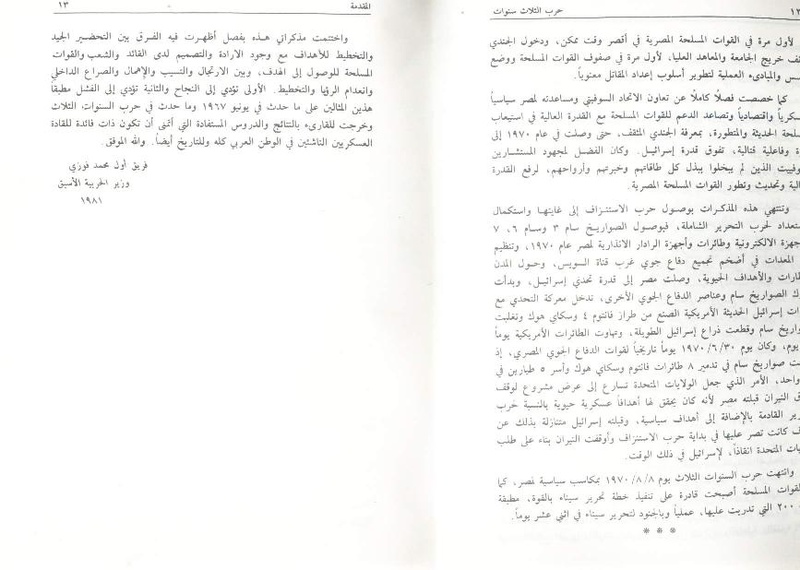 حرب الثلاث سنوات
لأول مرة في القوات المسلحة المصرية في أقصر وقت ممكن، ودخول الجندي
خريج الجامعة والمعاهد العليا، لأول مرة في صفوف القوات المسلحة ووضع
والمبادىء العملية لتطوير أسلوب إعداد المقاتل معنوياً.
كما خصصت فصلاً كاملاً عن تعاون الاتحاد السوفيتي ومساعدته لمصر سياسياً
واقتصادياً وتصاعد الدعم للقوات المسلحة مع القدرة العالية في استيعاب
الحديثة والمتطورة، بمعرفة الجندي المثقف، حتى وصلت في عام ١٩٧٠ إلى
وفاعلية قتالية، تفوق قدرة إسرائيل. وكان الفضل لمجهود المستشارين
الذين لم يبخلوا ببذل كل طاقاتهم وخبرتهم وأرواحهم، لرفع القدرة
وتحديث وتطور القوات المسلحة المصرية.
وتنتهي هذه المذكرات بوصول حرب الاستنزاف إلى غايتها واستكمال
لحرب التحرير الشاملة، فبوصول الصواريخ سام ٣ وسام ٦، ٧
الالكترونية وطائرات وأجهزة الرادار الانذارية لمصر عام ١٩٧٠، وتنظيم
المعدات في أضخم تجميع دفاع جوي غرب قناة السويس، وحول المدن
والأهداف الحيوية، وصلت مصر إلى قدرة تحدي إسرائيل، وبدأت
الصواريخ سام وعناصر الدفاع الجوي الأخرى، تدخل معركة التحدي مع
إسرائيل الحديثة الأمريكية الصنع من طراز فانتوم ٤ وسكاي هوك وتغلبت
سام وقطعت ذراع إسرائيل الطويلة، وتهاوت الطائرات الأمريكية يوماً
يوم، وكان يوم ١٩٧٠/٦/٣٠ يوماً تاريخياً لقوات الدفاع الجوي المصري، إذ
صواريخ سام في تدمير ٨ طائرات فانتوم وسكاي هوك وأسر ٥ طيارين في
واحد، الأمر الذي جعل الولايات المتحدة تسارع إلى عرض مشروع لوقف
النيران قبلته مصر لأنه كان يحقق لها أهدافاً عسكرية حيوية بالنسبة لحرب
القادمة بالإضافة إلى أهداف سياسية، وقبلته إسرائيل متنازلة بذلك عن
كانت تصر عليها في بداية حرب الاستنزاف وأوقفت النيران بناء على طلب
المتحدة انقاذاً، لإسرائيل في ذلك الوقت.
وانتهت حرب السنوات الثلاث يوم ١٩٧٠/٨/٨ بمكاسب سياسية لمصر، كما
القوات المسلحة أصبحت قادرة على تنفيذ خطة تحرير سيناء بالقوة، مطبقة
٢٠٠ التي تدربت عليها، عملياً وبالجنود لتحرير سيناء في اثني عشر يوماً.
* * *
المقدمة ١٣
واختتمت مذكراتي هذه بفصل أظهرت فيه الفرق بين التحضير الجيد
والتخطيط للأهداف مع وجود الارادة والتصميم لدى القائد والشعب والقوات
المسلحة للوصول إلى الهدف، وبين الارتجال والتسيب والإهمال والصراع الداخلي
وانعدام الرؤيا والتخطيط. الأولى تؤدي إلى النجاح والثانية تؤدي إلى الفشل مطبقاً
هذين المثالين على ما حدث في يونيو ١٩٦٧ وما حدث في حرب السنوات الثلاث
وخرجت للقارىء بالنتائج والدروس المستفادة التي أتمنى أن تكون ذات فائدة للقادة
العسكريين الناشئين في الوطن العربي كله وللتاريخ أيضاً. والله الموفق.
فريق أول محمد فوزي
وزير الحربية الأسبق
١٩٨١